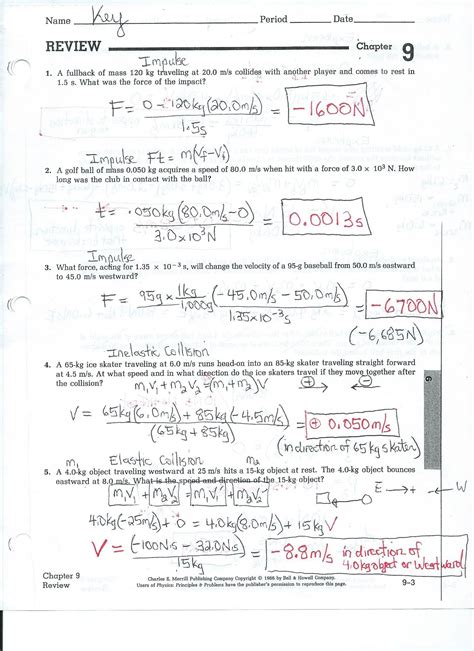 Name Key Period Date
REVIEW Chapter 9
Impulse
1. A fullback of mass 120 kg traveling at 20.0 m/s collides with another player and comes to rest in
1.5 s. What was the force of the impact?
F = 0 - 120kg(20.0m/s) / 1.5s = -1600N
Impulse Ft = m(Vf-Vi)
2. A golf ball of mass 0.050 kg acquires a speed of 80.0 m/s when hit with a force of 3.0 × 10³ N. How
long was the club in contact with the ball?
t = .050kg(80.0m/s-0) / 3.0x10³N = 0.0013s
Impulse
3. What force, acting for 1.35 × 10⁻³ s, will change the velocity of a 95-g baseball from 50.0 m/s eastward
to 45.0 m/s westward?
F = 95g x 1kg/1,000g (-45.0m/s - 50.0m/s) / 1.35x10⁻³s = -6700N
(-6,685N)
Inelastic Collision
4. A 65-kg ice skater traveling at 6.0 m/s runs head-on into an 85-kg skater traveling straight forward
at 4.5 m/s. At what speed and in what direction do the ice skaters travel if they move together after
the collision? m₁V₁ + m₂V₂ = (m₁+m₂)V + -
V = 65kg(6.0m/s) + 85kg(-4.5m/s) / (65kg + 85kg) = + 0.050m/s
(in direction of 65kg skater)
6
m₁ Elastic Collision m₂
5. A 4.0-kg object traveling westward at 25 m/s hits a 15-kg object at rest. The 4.0-kg object bounces
eastward at 8.0 m/s. What is the speed and direction of the 15-kg object?
m₁V₁ + m₂V₂ = m₁V₁' + m₂V₂' E → + ← W
4.0kg(-25m/s) + 0 = 4.0kg(8.0m/s) + 15kg V
V = (-100N·s - 32.0N·s) / 15kg = -8.8m/s in direction of
4.0kg object or Westward
Chapter 9
Review
Charles E. Merrill Publishing Company Copyright © 1986 by Bell & Howell Company.
Users of Physics: Principles & Problems have the publisher's permission to reproduce this page.
9–3